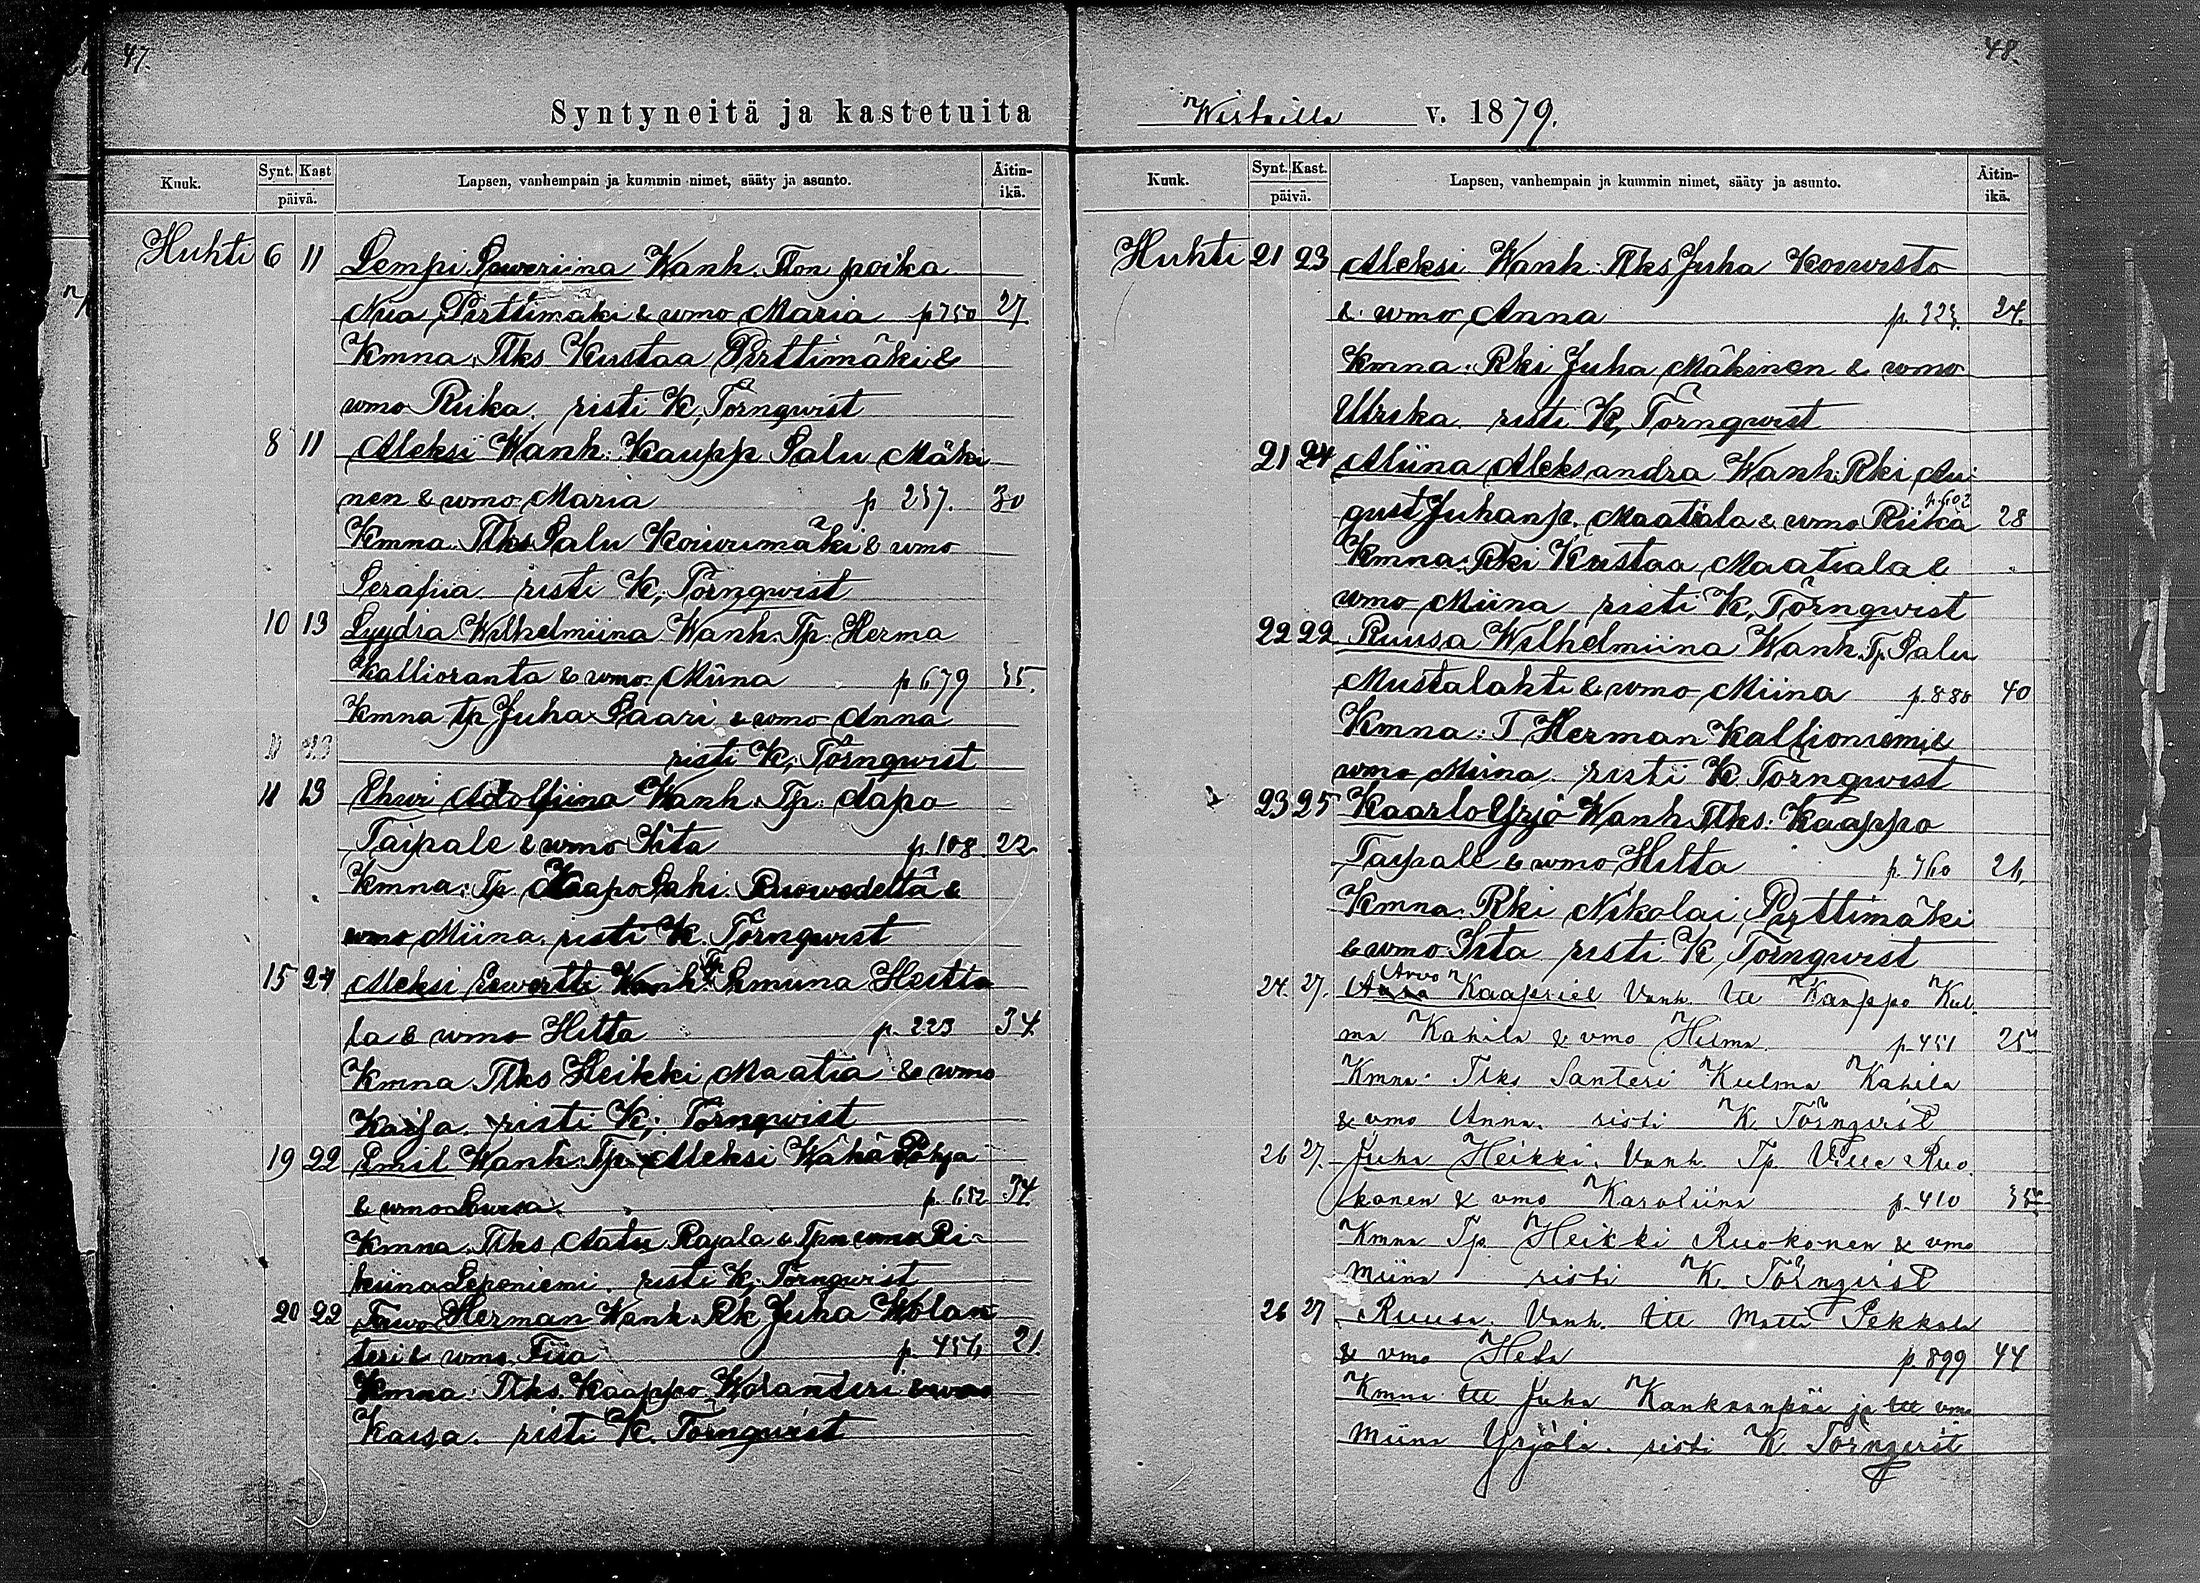 47.
Syntyneitä ja kastetuita
Kuuk. Synt. Kast päivä. Lapsen, vanhempain ja kummin nimet, sääty ja asunto. Äitin-ikä.
Huhti 6 11 Lempi Seweriina Wanh. Tlon poika
Nua Pirttimäki & wmo Maria p 750 27.
Kmna. Tlks Kustaa Pirttimäki &
wmo Riika. risti K. Törnqwist
8 11 Aleksi Wanh. Kaupp Salu Mäki
nen & wmo Maria p 237. 30
Kmna. Tlks Salu Kouvumäki & wmo
Serafia risti K. Törnqwist
10 13 Lyydia Wilhelmiina Wanh. Tp. Herma
Kallioranta & wmo. Miina p 679 35.
Kmna tp Juha Saari & wmo Anna
risti K. Törnqwist
11 13 Adolfiina Wanh. Tp. Aapo
Taipale & wmo Iita p 108. 22
Kmna: Tp. Kaapo Lahi Ruowedeltä &
wmo Miina. risti K. Törnqwist
15 24 Aleksi Ewertti Wanh. Hertta
la & wmo Hitta p. 223 34.
Kmna Tlks Heikki Maatia & wmo
Kaisa. risti K. Törnqwist
19 22 Emil Wanh. Tp. Aleksi Kähä Pohja
& wmo p. 652 34.
Kmna. Tlks Aatu Rajala & Tpn wmo Ri-
kiina Lepeniemi. risti K. Törnqwist
20 22 Herman Wanh. Rk Juha Wolan
teri & wmo Fiia p. 456 21.
Kmna: Tlks. Kaappo Wolanteri & wmo
Kaisa. risti K. Törnqwist
48.
Wirtailla v. 1879.
Kuuk. Synt. Kast. päivä. Lapsen, vanhempain ja kummin nimet, sääty ja asunto. Äitin-ikä.
Huhti 21 23 Aleksi Wanh. Tlks Juha Kouvisto
& wmo Anna p. 323. 24.
Kmna. Rki Juha Mäkinen & wmo
Ulrika risti K. Törnqwist
21 24 Aliina Aleksandra Wanh. Rki Au
p. 602
gust Juhanp. Maatiala & wmo Riika 28
Kmna. Rki Kustaa Maatiala &
wmo Miina risti K. Törnqwist
22 22 Ruusa Wilhelmiina Wanh. Tp. Salu
Mustalahti & wmo Miina p. 880 40
Kmna: T Herman Kallioniemi &
wmo Miina risti K Törnqwist
23 25 Kaarlo Yrjö Wanh. Tlks. Kaappo
Taipale & wmo Hilta p. 760 26
Kmna. Rki Nikolai Pirttimäki
& wmo Iita risti K. Törnqwist
Arvo
24. 27. Kaapriel Vanh. Itt Kaappo Kul
ma Kahila & vmo Hilma p. 451 25
Kmna. Tlks Santeri Kulma Kahila
& vmo Anna. risti K. Törnqvist
26 27. Juha Heikki. Vanh. Tp. Ville Ruo
konen & vmo Karoliina p. 410 35
Kmna Tp. Heikki Ruokonen & vmo
Miina risti K. Törnqvist
26 27 Ruusa. Vanh. Itt Matti Pekkala
& vmo Heta p. 899 44
Kmna Itt Juha Kankaanpää ja Itt vmo
Miina Yrjölä. risti K Törnqvist